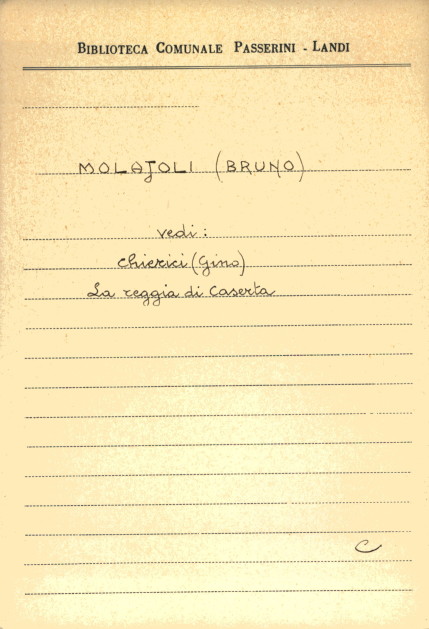 BIBLIOTECA COMUNALE PASSERINI - LANDI
MOLAJOLI (BRUNO)
vedi:
Chierici (Gino)
La reggia di Caserta
C